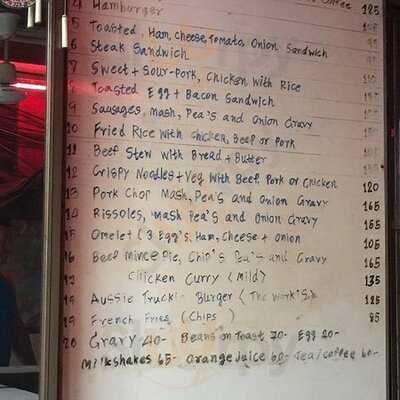 4 Hamburger 125
5 Toasted, Ham, Cheese, Tomato, Onion Sandwich
6 Steak Sandwich
7 Sweet + Sour-Pork, Chicken With Rice
8 Toasted Egg + Bacon Sandwich
9 Sausages, Mash, Pea's and Onion Gravy
10 Fried Rice With Chicken, Beef or Pork
11 Beef Stew With Bread + Butter
12 Crispy Noodles + Veg With Beef, Pork or Chicken 120
13 Pork Chop Mash, Pea's and Onion Gravy 165
14 Rissoles, Mash Pea's and Onion Gravy 155
15 Omelet (3 Egg's, Ham, Cheese + Onion 105
16 Beef Mince Pie, Chip's Pea's and Gravy 165
Chicken Curry (Mild) 135
Aussie Truckie Burger (The Work's) 185
19 French Fries (Chips) 85
20 Gravy 40- Beans on Toast 70- Egg 20-
Milkshakes 65- Orange Juice 60- Tea/Coffee 60-